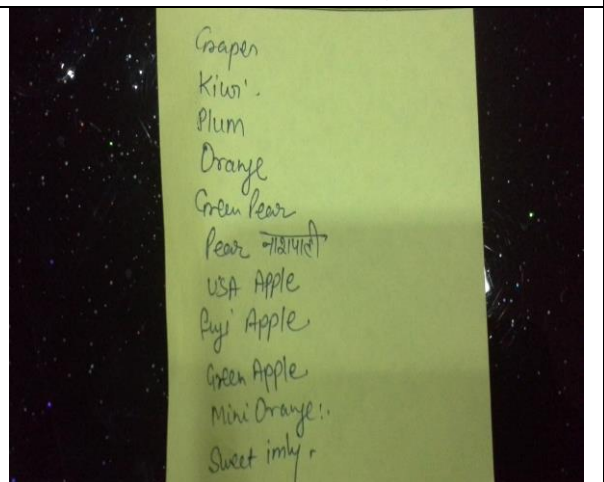 Grapes
Kiwi.
Plum
Orange
Green Pear
Pear नाशपाती
USA Apple
Fuji Apple
Green Apple
Mini Orange.
Sweet imly.